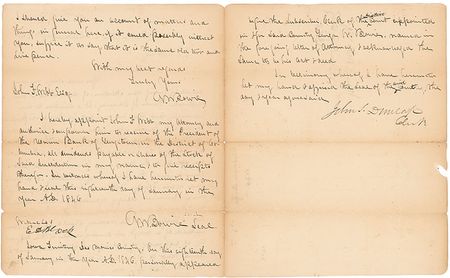 I should give you an account of matters and
things in general here if it could possibly interest
you, suffice it to say that it is the same old town and
With my best regards
Truly Yours
John F. Webb Esq.
G W Bowie
I hereby appoint John F. Webb my Attorney and
authorize and empower him to receive of the President of
the Union Bank of Georgetown in the District of Co-
lumbia, all dividends payable on shares of the stock of
said Institution in my name, & to give receipts
therefor. In witness whereof I have hereunto set my
hand & seal this eighteenth day of January in the
year A.D. 1846
G W Bowie Seal
Witness
Iowa Territory Des Moines County: On this eighteenth day
of January in the year A.D. 1846, personally appeared
before the Subscriber Clerk of the District Court appointed
in & for said County George W. Bowie, named in
the foregoing letter of Attorney & acknowledged the
same to be his act & deed
In testimony whereof I have hereunto
set my hand & affixed the seal of the said Court, the
day & year aforesaid
John S. Dunlap
Clerk